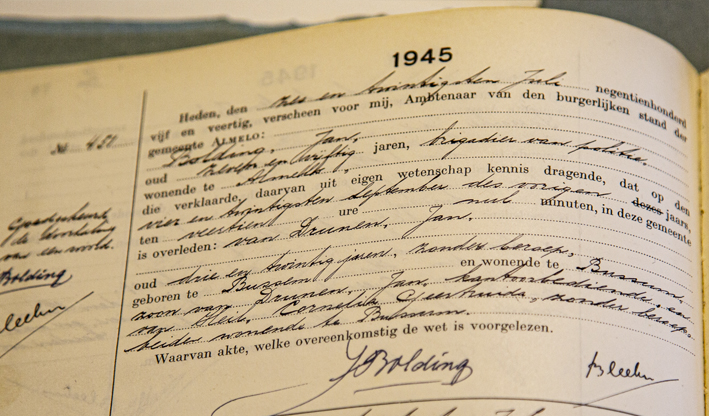 1945
Heden, den zes en twintigsten Juli negentienhonderd
vijf en veertig, verscheen voor mij, Ambtenaar van den burgerlijken stand der
gemeente ALMELO:
Bolding, Jan,
oud zeven en vijftig jaren, brigadier van politie,
wonende te Almelo,
die verklaarde, daarvan uit eigen wetenschap kennis dragende, dat op den
vier en twintigsten September des vorigen dezes jaars,
ten veertien ure nul minuten, in deze gemeente
is overleden: van Drunen, Jan,
oud drie en twintig jaren, zonder beroep,
geboren te Bussum en wonende te Bussum,
zoon van van Drunen, Jan, kantoorbediende, en
van Heil, Cornelia, zonder beroep,
beiden wonende te Bussum.
Waarvan akte, welke overeenkomstig de wet is voorgelezen.
No 451
Goedgekeurd
de doorhaling
van een woord.
Bolding
JBolding